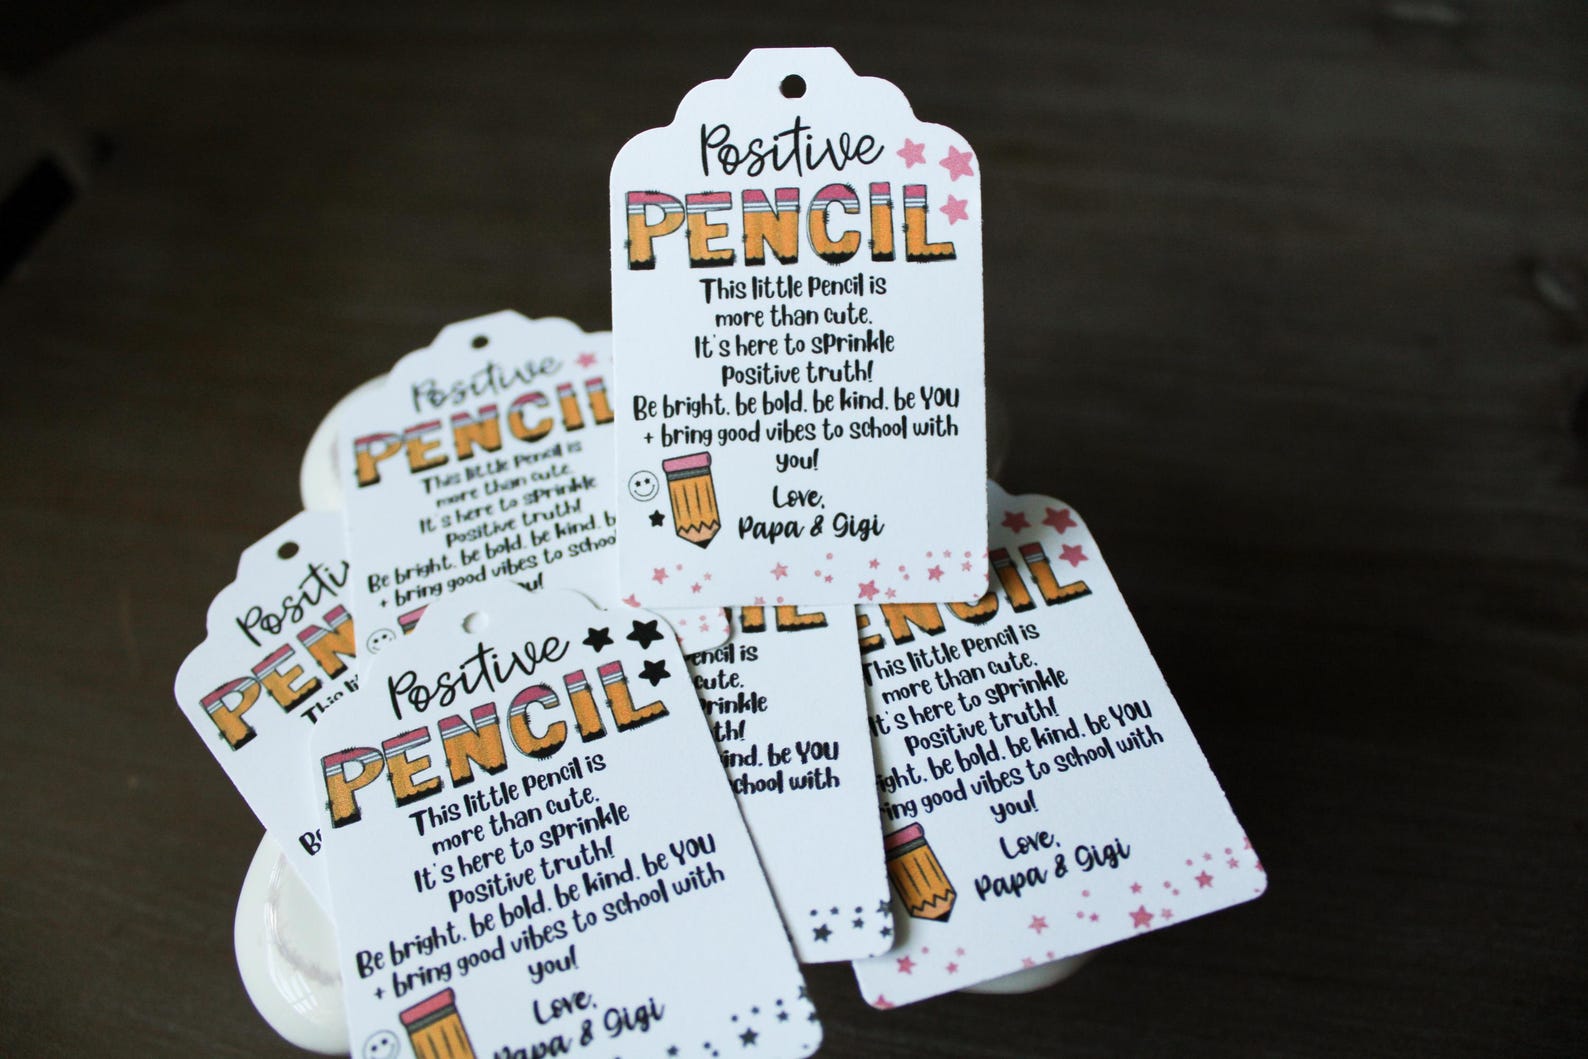 Positive
PENCIL
This little pencil is
more than cute.
It's here to sprinkle
positive truth!
Be bright, be bold, be kind, be YOU
+ bring good vibes to school with
you!
Love,
Papa & Gigi
Positive
PENCIL
This little pencil is
more than cute.
It's here to sprinkle
positive truth!
Be bright, be bold, be kind, b
+ bring good vibes to schoo
you!
Positi
PEN
This li
B
Positive
PENCIL
This little pencil is
more than cute.
It's here to sprinkle
positive truth!
Be bright, be bold, be kind, be YOU
+ bring good vibes to school with
you!
Love,
Papa & Gigi
IL
encil is
cute.
prinkle
th!
ind, be YOU
chool with
ENCIL
This little pencil is
more than cute.
It's here to sprinkle
positive truth!
ight, be bold, be kind, be YOU
ing good vibes to school with
you!
Love,
Papa & Gigi